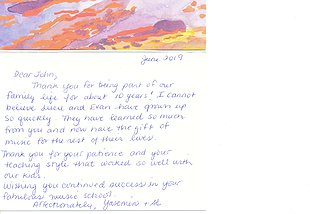 June 2019
Dear John,
Thank you for being part of our
family life for about 10 years! I cannot
believe Luca and Evan have grown up
so quickly. They have learned so much
from you and now have the gift of
music for the rest of their lives.
Thank you for your patience and your
teaching style that worked so well with
our kids.
Wishing you continued success in your
fabulous music school.
Affectionately, Yasemin +